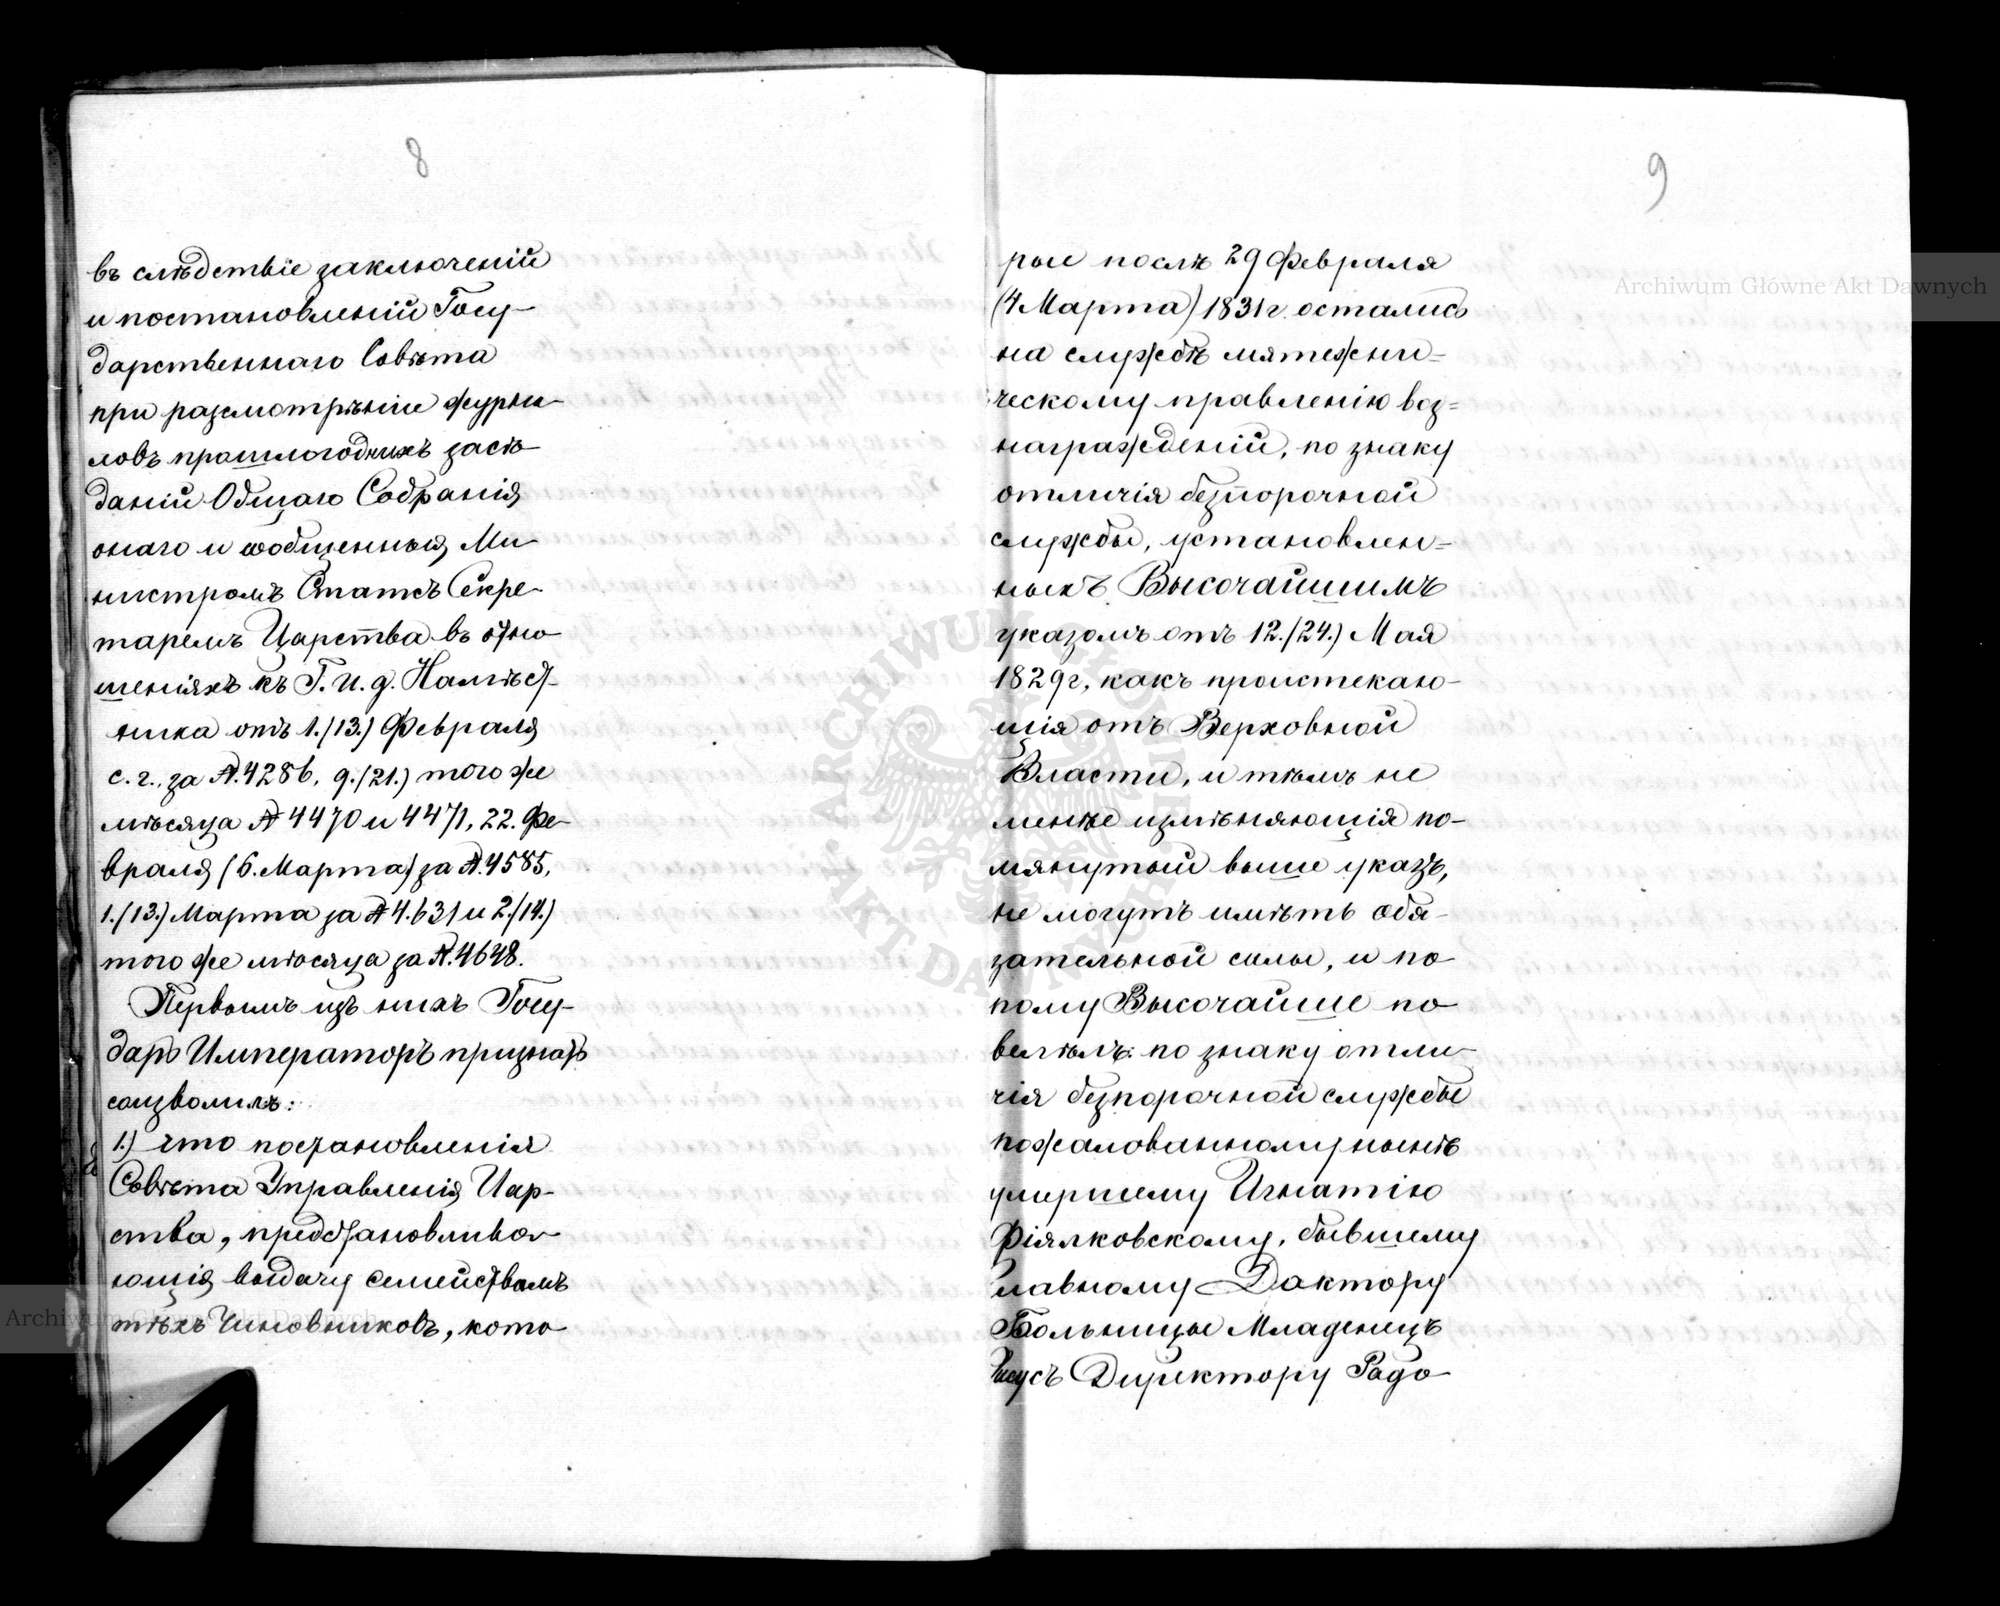 8
въ слѣдствіе заключеній
и постановленій Госу-
дарственнаго Совѣта
при разсмотрѣніи журна-
ловъ прошлогоднихъ засѣ-
даній Общаго Собранія
онаго и сообщенныя Ми-
нистромъ Статсъ Секре-
таремъ Царства въ отно-
шеніяхъ къ Г. И. д. Намѣст-
ника отъ 1./13.) Февраля
с. г., за №. 4286, 9./21.) того же
мѣсяца № 4470 и 4471, 22. Фе-
враля (6. Марта) за №. 4585,
1./13.) Марта за № 4.631 и 2./14.)
того же мѣсяца за №. 4648.
Первымъ изъ нихъ Госу-
дарь Императоръ признать
соизволилъ:
1.) что постановленія
Совѣта Управленія Цар-
ства, предстановлива-
ющія выдачу семействамъ
тѣхъ Чиновниковъ, кото-
9
рые послѣ 29 Февраля
(4 Марта) 1831 г. остались
на службѣ мятежни=
ческому правленію воз=
награжденій, по знаку
отличія безпорочной
службы, установлен=
ныхъ Высочайшимъ
указомъ отъ 12./24.) Мая
1829 г, какъ проистекаю-
щія отъ Верховной
Власти, и тѣмъ не
менѣе измѣняющія по-
мянутый выше указъ,
не могутъ имѣть обя-
зательной силы, и по
тому Высочайше по
велѣлъ: по знаку отли-
чія безпорочной службы
пожалованному нынѣ
умершему Игнатію
Фіялковскому, бывшему
Главному Доктору
Больницы Младенецъ
Іисусъ Директору Радо
Archiwum Główne Akt Dawnych
Archiwum Główne Akt Dawnych
ARCHIWUM GŁÓWNE AKT DAWNYCH